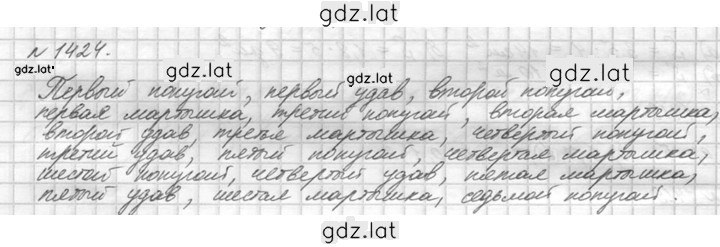 gdz.lat
№ 1424.
gdz.lat
gdz.lat
gdz.lat
gdz.lat
Первый попугай, первый удав, второй попугай,
первая мартышка, третий попугай, вторая мартышка,
второй удав, третья мартышка, четвертый попугай,
третий удав, пятый попугай, четвертая мартышка,
шестой попугай, четвертый удав, пятая мартышка,
пятый удав, шестая мартышка, седьмой попугай.
gdz.lat
gdz.lat
gdz.lat
gdz.lat